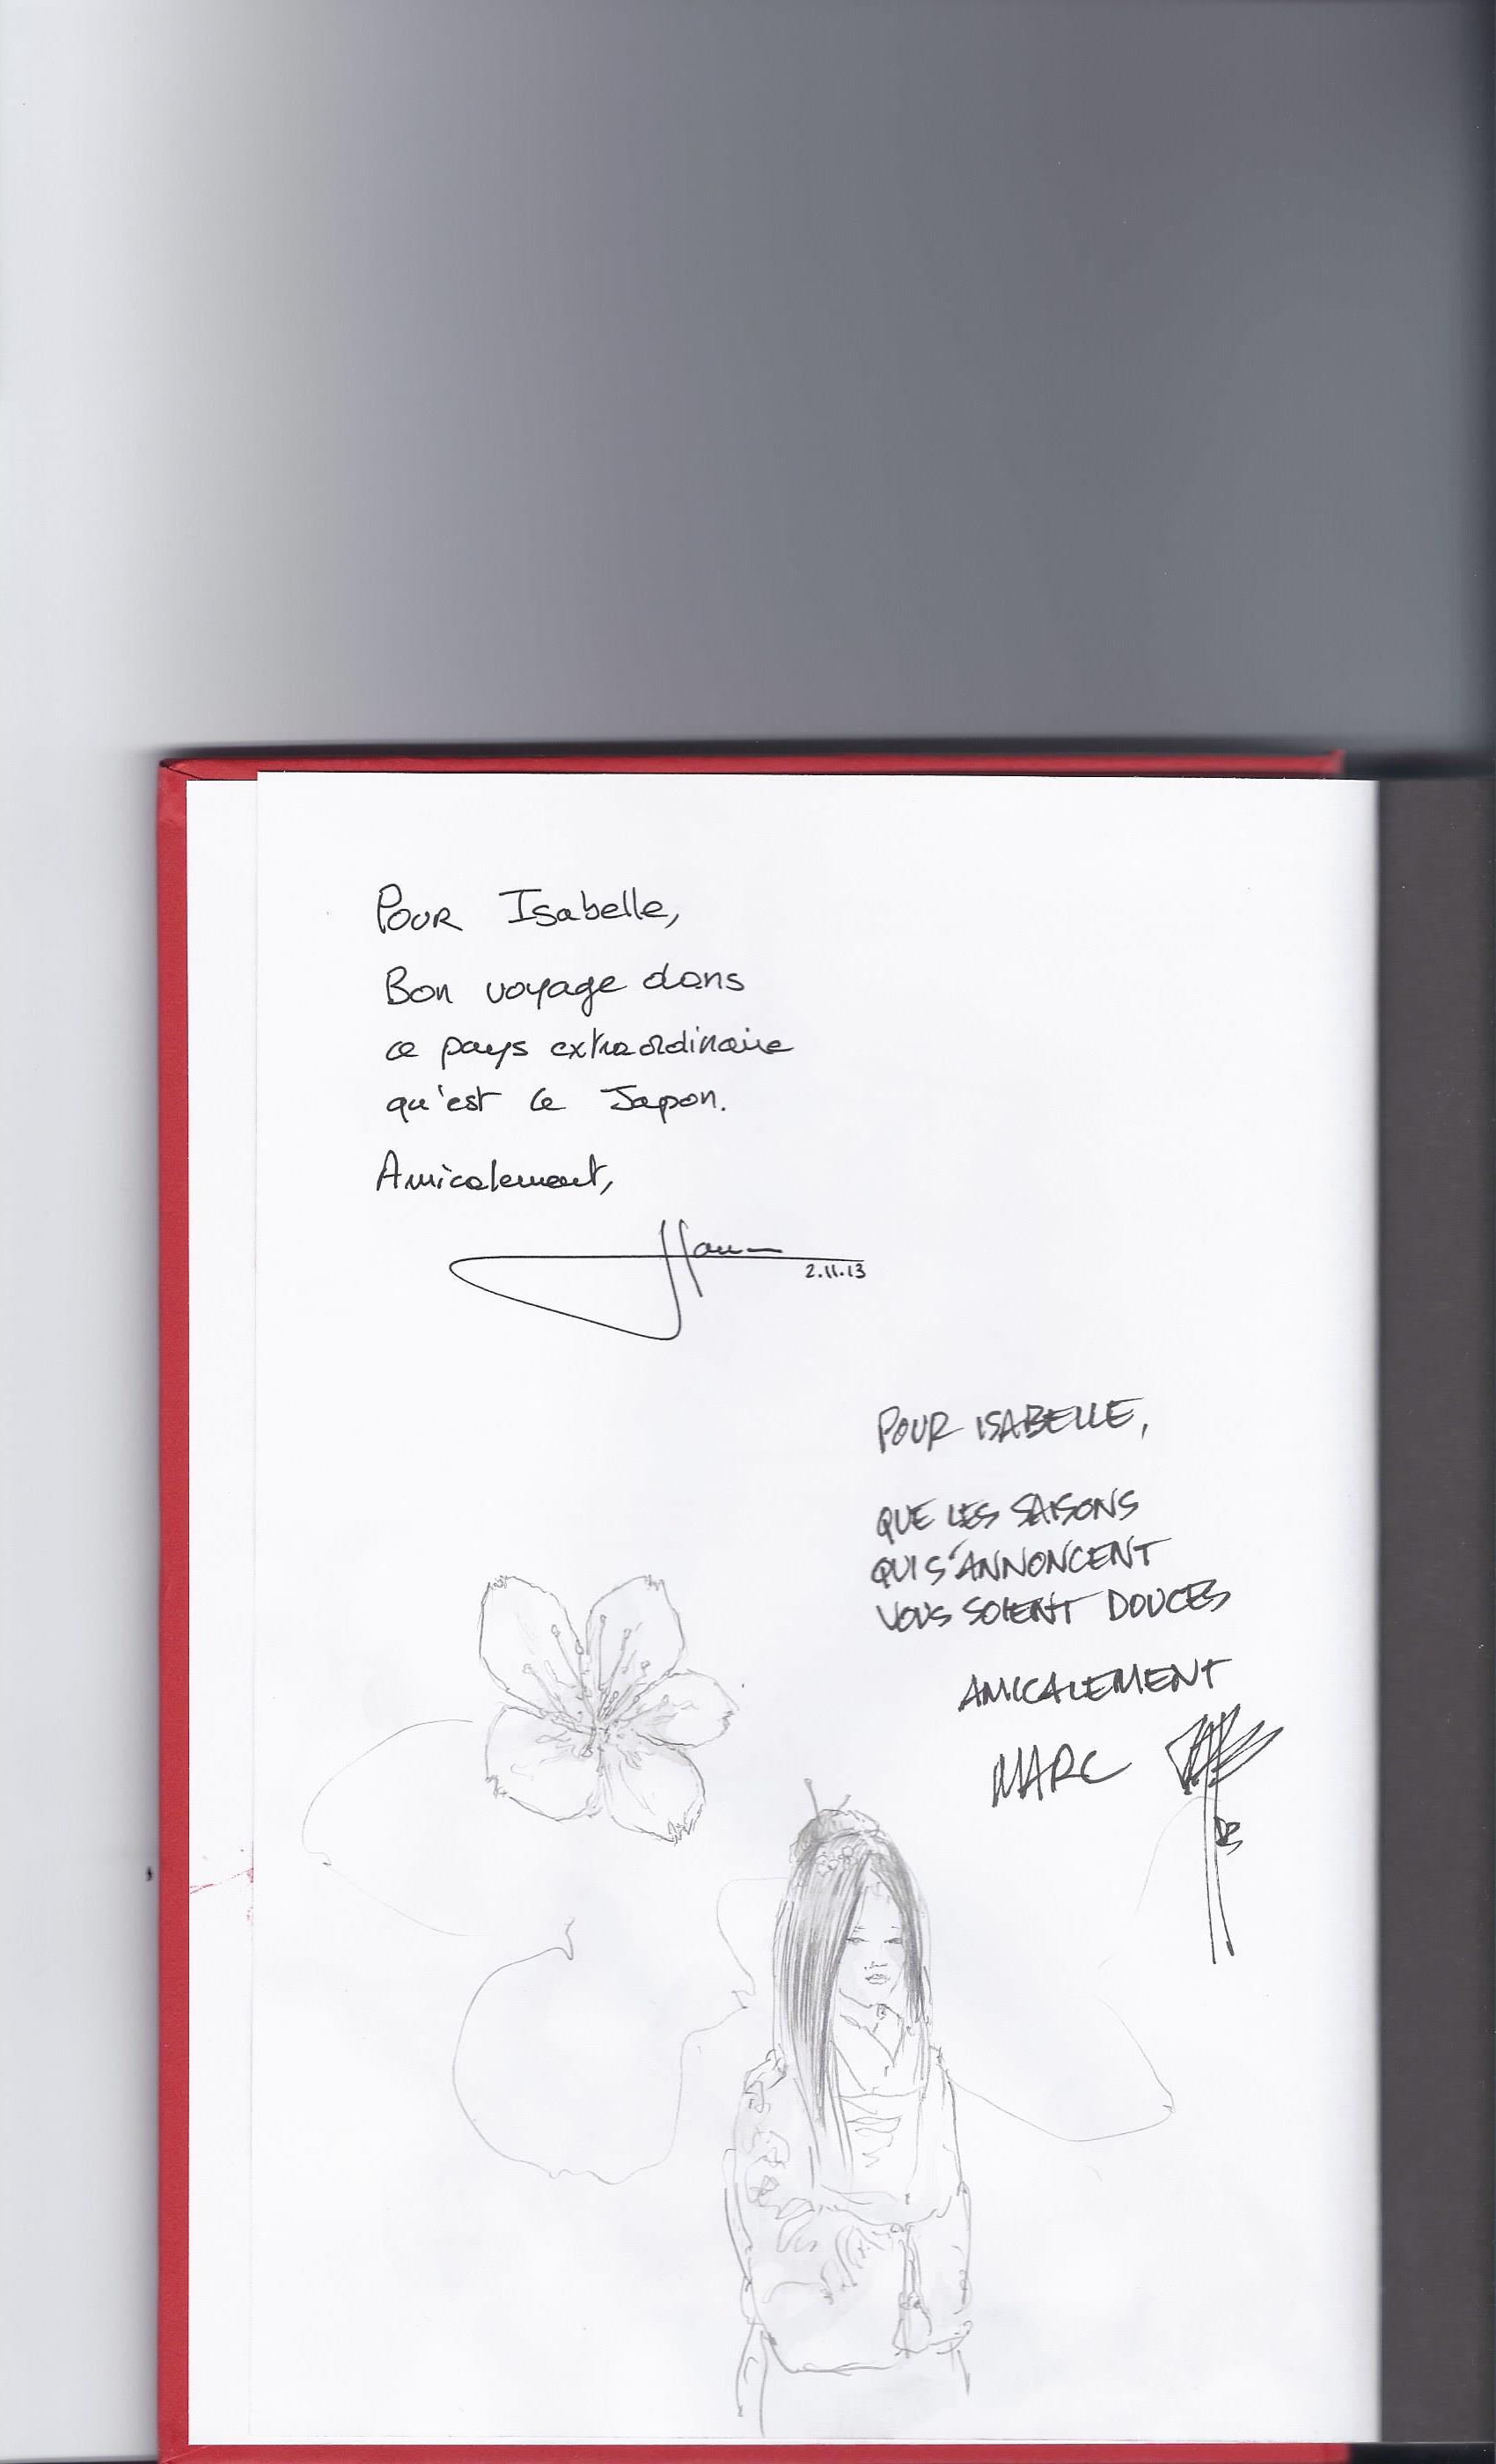 Pour Isabelle,
Bon voyage dans
ce pays extraordinaire
qu'est le Japon.
Amicalement,
2.11.13
POUR ISABELLE,
QUE LES SAISONS
QUI S'ANNONCENT
VOUS SOIENT DOUCES
AMICALEMENT
MARC